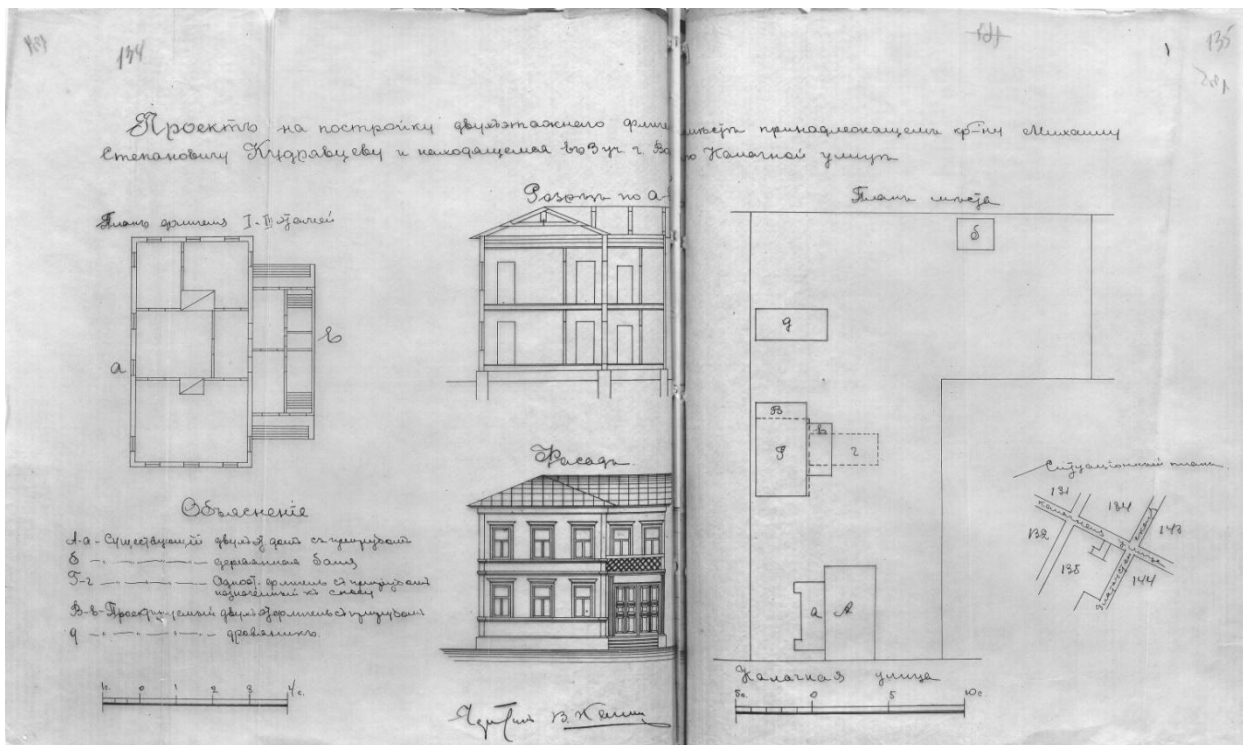 134
135
Проектъ на постройку двухъэтажнаго флиг мѣстѣ принадлежащемъ кр-ну Михаилу
Степановичу Кудрявцеву и находящемся въ 3 уч. г. Во по Калачной улицѣ
Планъ флигеля I-II этажей
а
в
Разрѣзъ по а-
Фасадъ
Объясненіе
А-а - Существующій двухъэт домъ съ прирубомъ
б - деревянная баня
Г-г - Одноэт. флигель съ прирубомъ
назначенный къ сносу
В-в - Проектируемый двухъэт флигель съ прирубомъ
д - дровяникъ.
1с. 0 1 2 3 4с.
В.
Планъ мѣста
б
д
В
в
Г
г
а
А
Калачная улица
5с. 0 5 10с
Ситуаціонный планъ.
131
134
132
143
135
144